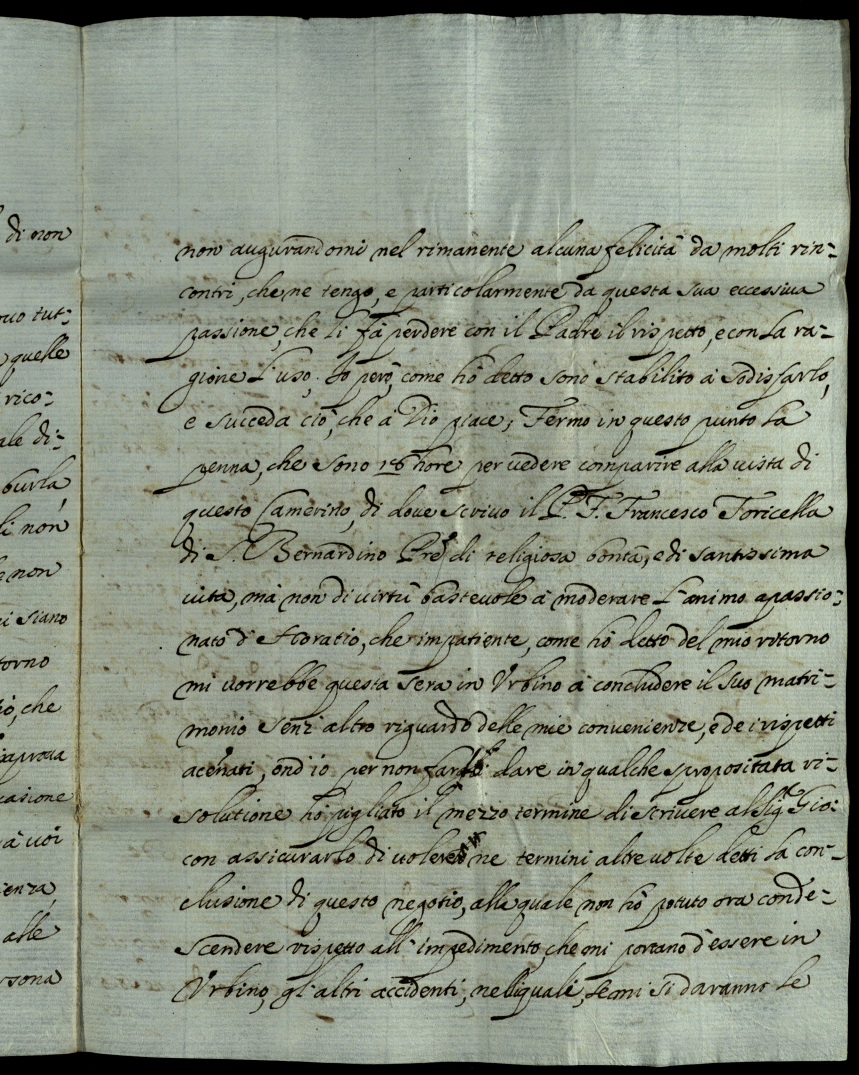 di non
tut-
quelle
rico-
ale di-
burla,
li non
non
siano
torno
che
casione
à voi
enza,
alle
rsona
non augurandomi nel rimanente alcuna felicità da molti rin-
contri, che ne tengo, e particolarmente da questa sua eccessiva
passione, che li fà perdere con il Padre il rispetto, e con la ra-
gione l'uso. Io però, come hò detto sono stabilito à sodisfarlo,
e succeda ciò, che à Dio piace; Fermo in questo punto la
penna, che sono 16 hore per vedere comparire alla vista di
questo Camerino, di dove scrivo il P. F. Francesco Toricella
di S. Bernardino Pre di religiosa bontà, e di santissima
vita, mà non di virtù bastevole à moderare l'animo apassio-
nato d'Horatio, che impatiente, come hò detto del mio ritorno
mi vorrebbe questa sera in Urbino à concludere il suo matri-
monio senz'altro riguardo delle mie convenienze, e de i rispetti
acenati, ond'io per non farlo dare in qualche spropositata ri-
solutione hò pigliato il mezzo termine di scrivere al Sig.r Gio:
con assicurarlo di volere ne termini altre volte detti la con-
clusione di questo negotio, alle quale non hò potuto ora conde-
scendere rispetto all'impedimento, che mi portano d'essere in
Urbino, gl'altri accidenti, nelli quali, se mi si daranno le